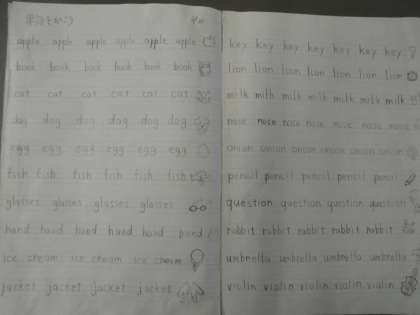 単語をかこう
apple apple apple apple apple apple
book book book book book book
cat cat cat cat cat cat
dog dog dog dog dog dog
egg egg egg egg egg egg
fish fish fish fish fish fish
glasses glasses glasses glasses
hand hand hand hand hand hand
ice cream ice cream ice cream
jacket jacket jacket jacket
key key key key key key key
lion lion lion lion lion lion lion
milk milk milk milk milk milk milk
nose nose nose nose nose nose nose
onion onion onion onion onion onion
pencil pencil pencil pencil pencil
question question question question
rabbit rabbit rabbit rabbit rabbit
umbrella umbrella umbrella umbrella
violin violin violin violin violin